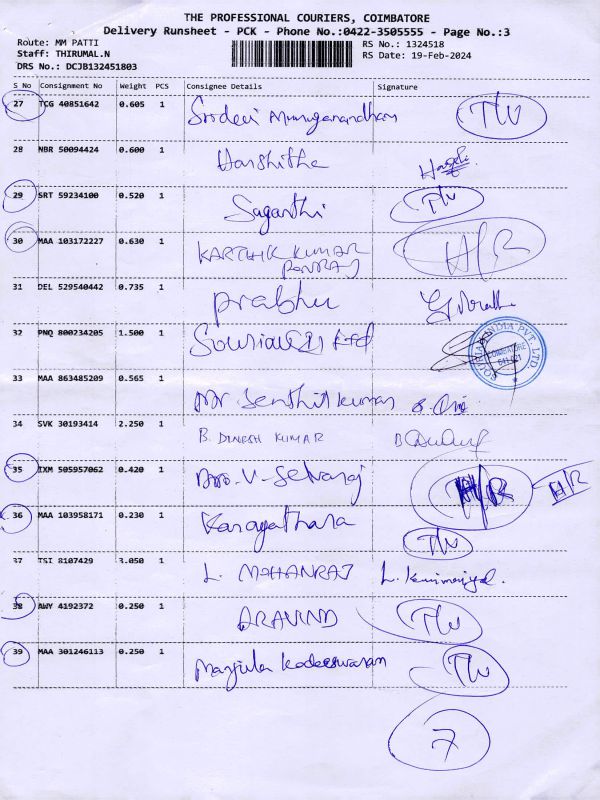 THE PROFESSIONAL COURIERS, COIMBATORE
Delivery Runsheet - PCK - Phone No.:0422-3505555 - Page No.:3
Route: MM PATTI
Staff: THIRUMAL.N
DRS No.: DCJB132451803
RS No.: 1324518
RS Date: 19-Feb-2024
S No Consignment No Weight PCS Consignee Details Signature
27 TCG 40851642 0.605 1 Sridevi Muruganandham TLV
28 NBR 50094424 0.600 1 Harshitha
29 SRT 59234100 0.520 1 Saganthi TLV
30 MAA 103172227 0.630 1 KARTHIK KUMAR PONRAJ H/R
31 DEL 529540442 0.735 1 Prabhu
32 PNQ 800234205 1.500 1 Souriau Ltd
SOURIAU INDIA PVT. LTD.
COIMBATORE
641 021
33 MAA 863485209 0.565 1 Mr. Senthil kumar
34 SVK 30193414 2.250 1 B. DINESH KUMAR
35 IXM 505957062 0.420 1 V. Selvaraj H/R H/R
36 MAA 103958171 0.230 1 Karagathara TLV
37 TSI 8107429 3.050 1 L. MOHANRAJ
38 AWY 4192372 0.250 1 ARAVIND TLV
39 MAA 301246113 0.250 1 Manjula Kodeeswaran TLV
7